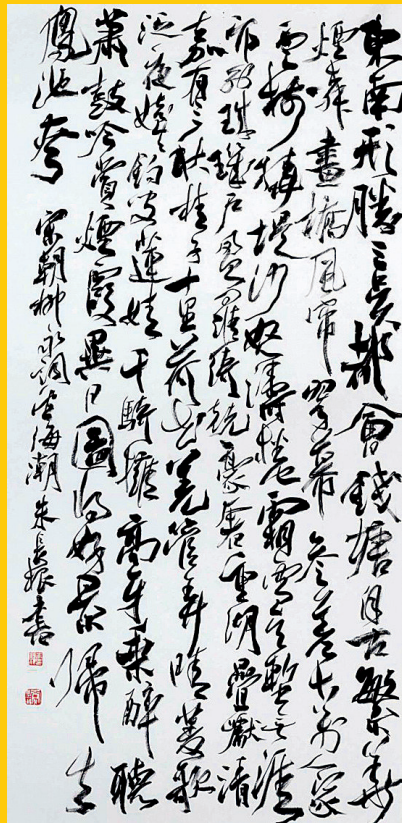 東南形勝三吳都會錢塘自古繁華
煙柳畫橋風簾翠幕參差十萬人家
雲樹繞堤沙怒濤卷霜雪天塹無涯
市列珠璣戶盈羅綺競豪奢重湖疊巘清
嘉有三秋桂子十里荷花羌管弄晴菱歌
泛夜嬉嬉釣叟蓮娃千騎擁高牙乘醉聽
蕭鼓吟賞煙霞異日圖將好景歸去
鳳池夸 宋朝柳永詞望海潮 朱長振書